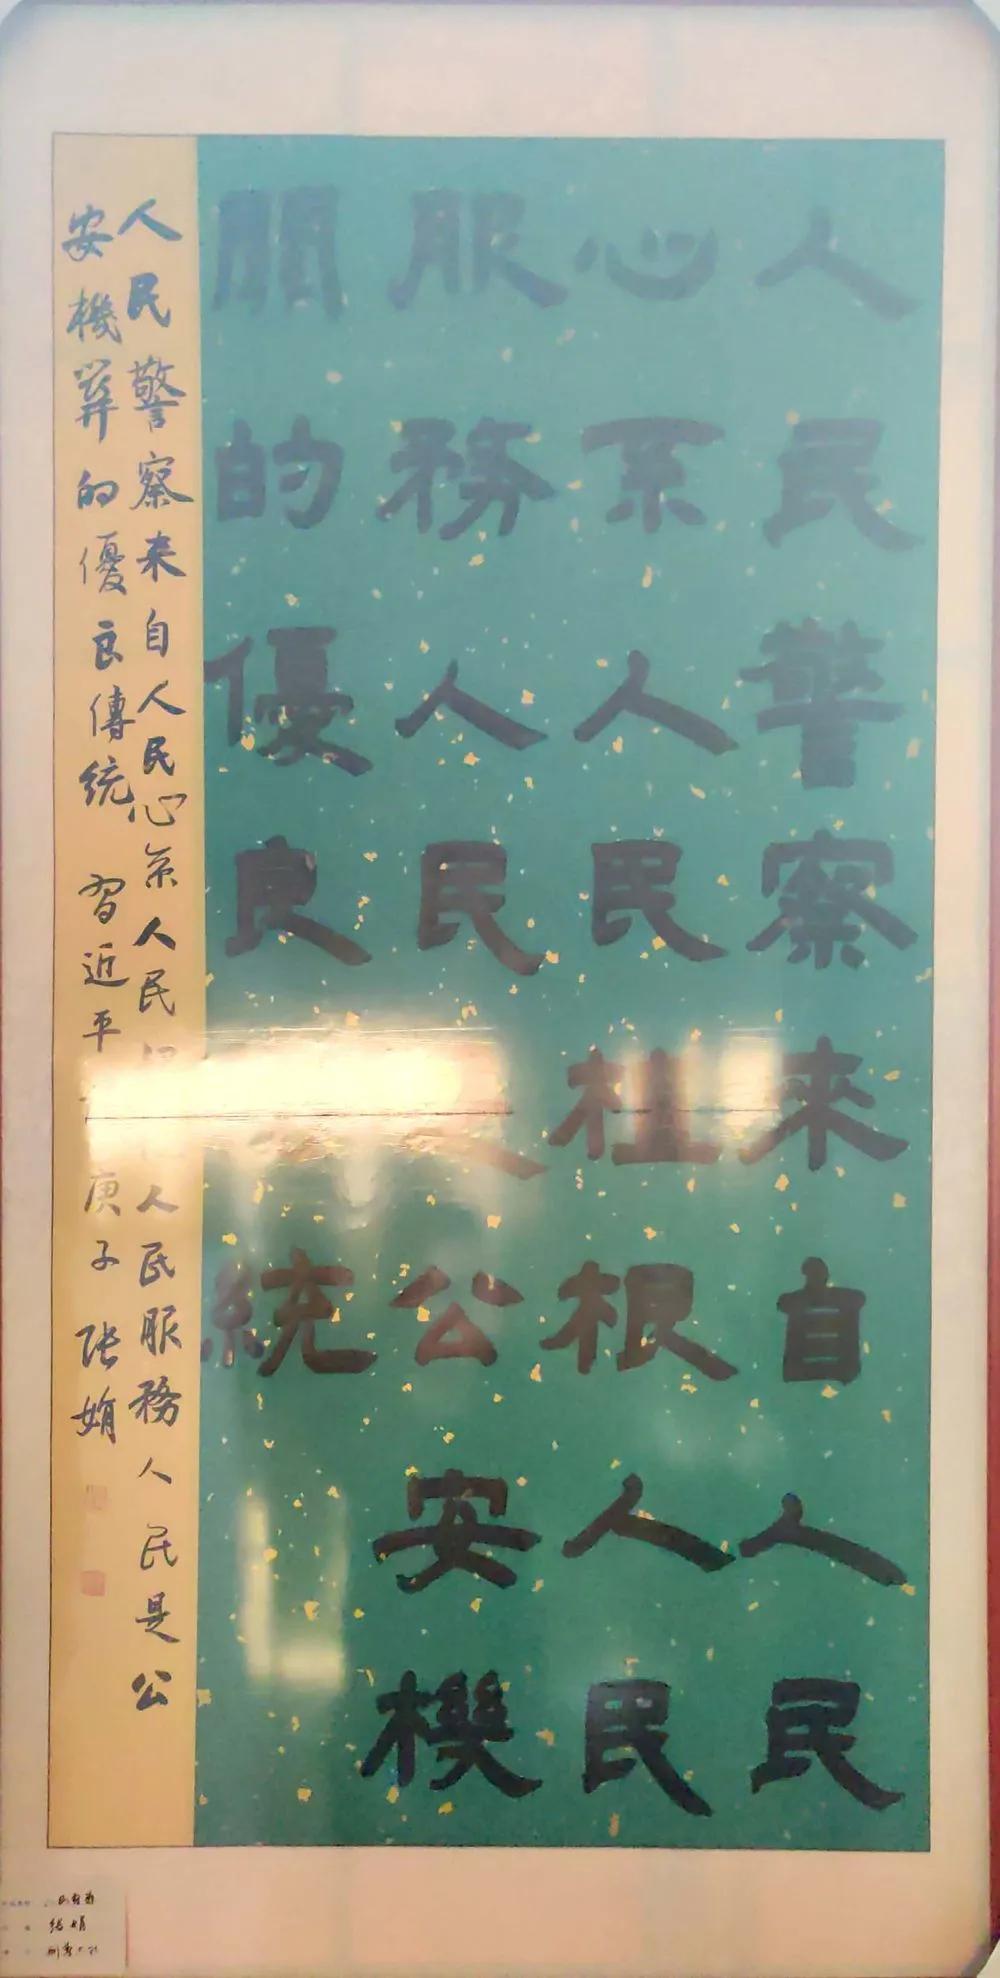 人民警察来自人民
心系人民植根人民
服務人民公安機
關的優良統
人民警察来自人民心系人民人民服務人民是公
安機關的優良傳統 習近平 庚子 张娟
张娟